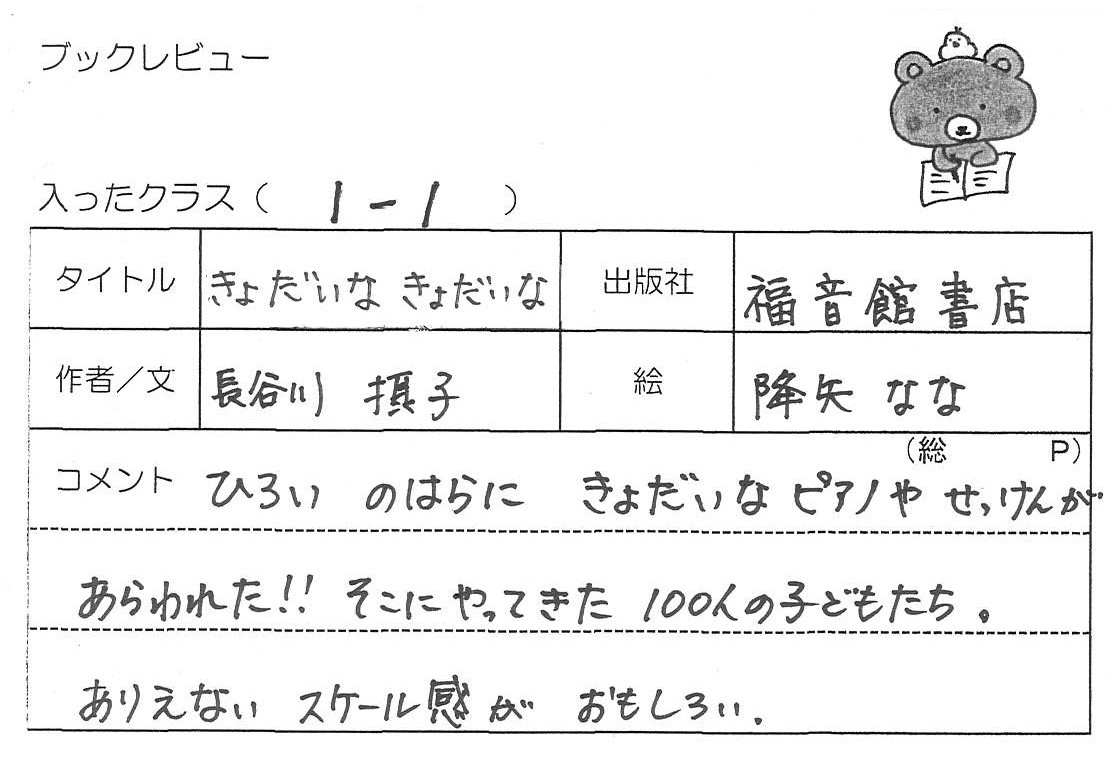 ブックレビュー
入ったクラス（ 1-1 ）
タイトル きょだいな きょだいな 出版社 福音館書店
作者／文 長谷川 摂子 絵 降矢 なな
（総 P）
コメント ひろい のはらに きょだいな ピアノや せっけんが
あらわれた!! そこにやってきた 100人の子どもたち。
ありえない スケール感が おもしろい.